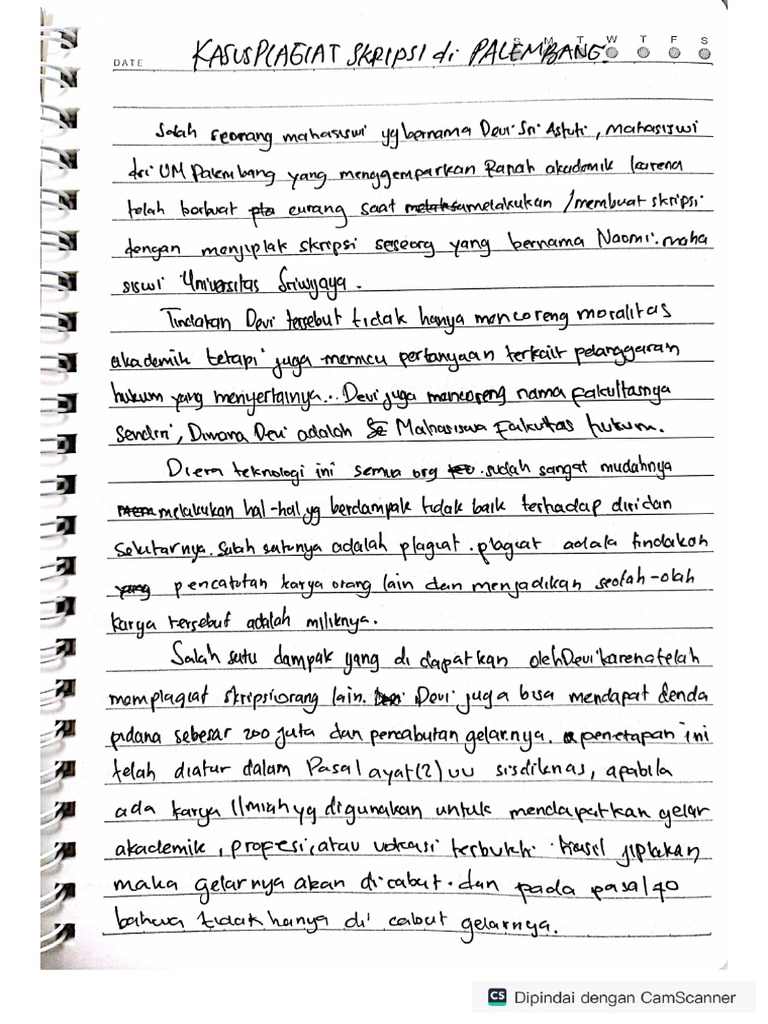 KASUS PLAGIAT SKRIPSI di PALEMBANG.
DATE S M T W T F S
Salah seorang mahasiswi yg bernama Devi Sri Astuti, Mahasiswi
dri UM Palembang yang menggemparkan Ranah akademik karena
telah berbuat curang saat melakukan / membuat skripsi
dengan menjiplak skripsi seseorg yang bernama Naomi. maha
siswi Universitas Sriwijaya.
Tindakan Devi tersebut tidak hanya mencoreng moralitas
akademik tetapi juga memicu pertanyaan terkait pelanggaran
hukum yang menyertainya... Devi juga mencoreng nama fakultasnya
Sendiri, Dimana Devi adalah Mahasiswa Fakultas hukum.
Diera teknologi ini semua org sudah sangat mudahnya
melakukan hal-hal yg berdampak tidak baik terhadap diri dan
sekitarnya. Salah satunya adalah plagiat. plagiat adala tindakan
pencatutan karya orang lain dan menjadikan seolah-olah
karya tersebut adalah miliknya.
Salah satu dampak yang di dapatkan oleh Devi karena telah
memplagiat skripsi orang lain. Devi juga bisa mendapat denda
pidana sebesar 200 juta dan pencabutan gelarnya. penetapan ini
telah diatur dalam Pasal ayat (2) UU sisdiknas, apabila
ada karya Ilmiah yg digunakan untuk mendapatkan gelar
akademik, propesi, atau vokasi terbukti hasil jiplakan
maka gelarnya akan dicabut. dan pada pasal 70
bahwa tidak hanya di cabut gelarnya.
CS Dipindai dengan CamScanner